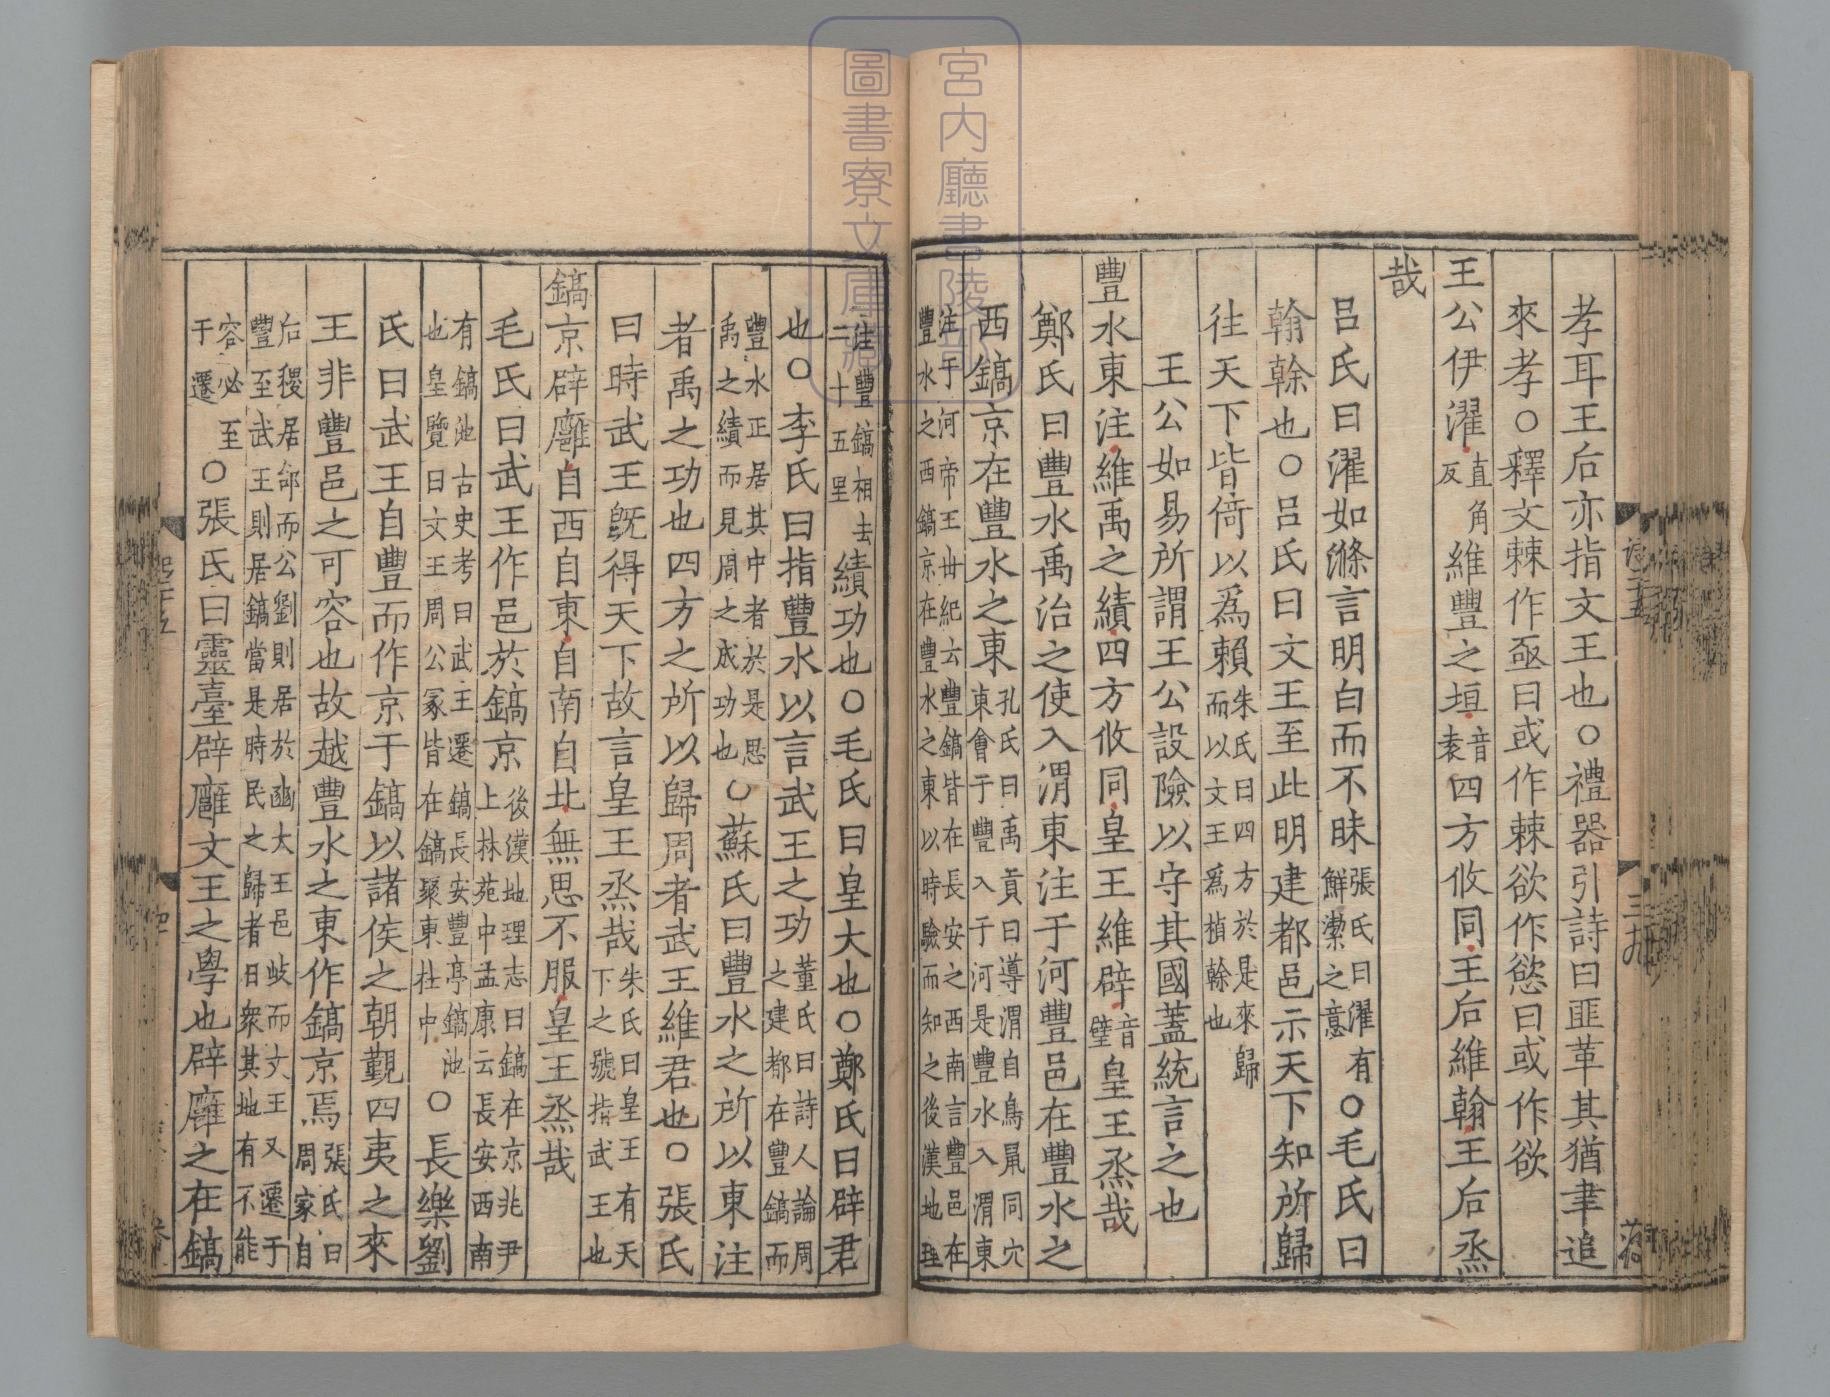 孝耳王后亦指文王也○禮器引詩曰匪革其猶聿追
來孝○釋文棘作亟曰或作棘欲作慾曰或作欲
王公伊濯直角反維豐之垣音袁四方攸同王后維翰王后烝
哉
呂氏曰濯如滌言明白而不昧張氏曰濯有鮮潔之意○毛氏曰
翰榦也○呂氏曰文王至此明建都邑示天下知所歸
往天下皆倚以爲賴朱氏曰四方於是來歸而以文王爲楨榦也
王公如易所謂王公設險以守其國蓋統言之也
豐水東注維禹之績四方攸同皇王維辟音璧皇王烝哉
鄭氏曰豐水禹治之使入渭東注于河豐邑在豐水之
西鎬京在豐水之東孔氏曰禹貢曰導渭自鳥鼠同穴東會于豐入于河是豐水入渭東
注于河帝王世紀云豐鎬皆在長安之西南言豐邑在豐水之西鎬京在豐水之東以時驗而知之後漢地理
注豐鎬相去二十五里績功也○毛氏曰皇大也○鄭氏曰辟君
也○李氏曰指豐水以言武王之功董氏曰詩人論周之建都在豐鎬而
豐水正居其中者於是思禹之績而見周之成功也○蘇氏曰豐水之所以東注
者禹之功也四方之所以歸周者武王維君也○張氏
曰時武王旣得天下故言皇王烝哉朱氏曰皇王有天下之號指武王也
鎬京辟廱自西自東自南自北無思不服皇王烝哉
毛氏曰武王作邑於鎬京後漢地理志曰鎬在京兆尹上林苑中孟康云長安西南
有鎬池古史考曰武王遷鎬長安豐亭鎬池也皇覽曰文王周公冢皆在鎬聚東杜中○長樂劉
氏曰武王自豐而作京于鎬以諸侯之朝覲四夷之來
王非豐邑之可容也故越豐水之東作鎬京焉張氏曰周家自
后稷居邰而公劉則居於豳大王邑岐而文王又遷于豐至武王則居鎬當是時民之歸者日衆其地有不能
容必至于遷○張氏曰靈臺辟廱文王之學也辟廱之在鎬
宮内廳書陵部
圖書寮文庫藏